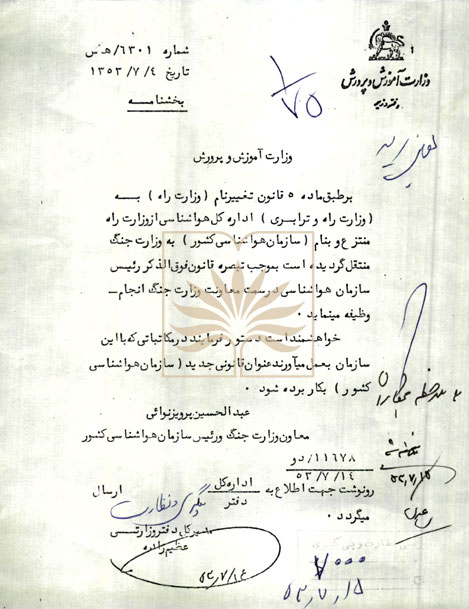 شماره ۶۳۰۱/هـس
تاریخ ۱۳۵۳/۷/۴
بخشنامـــه
وزارت آموزش و پرورش
دفتر وزیر
۷۵
وزارت آموزش و پرورش
برطبق ماده ۵ قانون تغییرنام (وزارت راه) بـــه
(وزارت راه و ترابری) اداره کل هواشناسی ازوزارت راه
منتزع و بنام (سازمان هواشناسی کشور) به وزارت جنگ
منتقل گردیده است بموجب تبصره قانون فوق الذکر رئیس
سازمان هواشناسی درسمت معاونت وزارت جنگ انجام ـ
وظیفه مینماید ۰
خواهشمند است دستور فرمایند درمکاتباتی که با این
سازمان بعمل میآورند عنوان قانونی جدید (سازمان هواشناسی
کشور) بکار برده شود ۰
عبدالحسین پرویزنوائی
معاون وزارت جنگ و رئیس سازمان هواشناسی کشور
۱۱۶۷۸/دو
۵۳/۷/۱۴
رونوشت جهت اطلاع به اداره کل
دفتر
ارسال
میگردد ۰
مدیرکل دفتر وزارتـــی
عظیم زاده
۵۳/۷/۱۴
۵۳/۷/۱۵